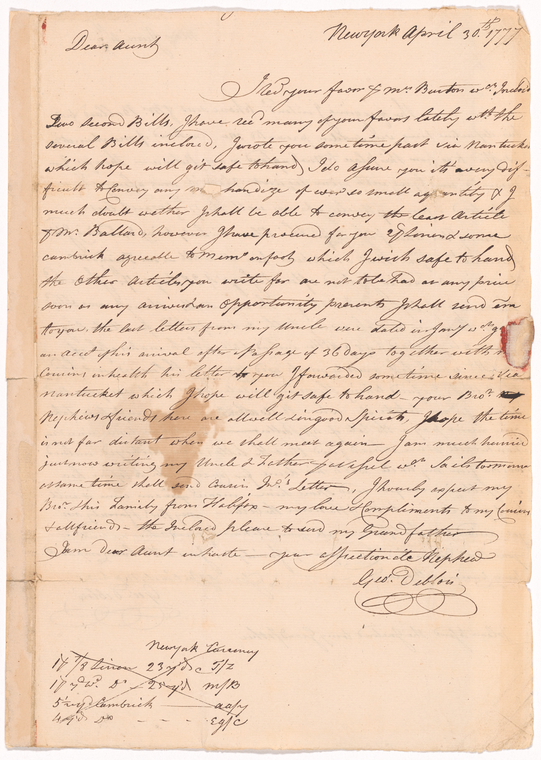 Newyork April 30.th 1777
Dear Aunt
I recd your favor Mr. Burton wch Inclosd
Two Second Bills, I have recd many of your favors lately wth the
several Bills inclosed, I wrote you some time past via Nantucket
which hope will git safe to hand, I do assure you it's a very dif-
ficult to Convey any handize of ever so small a quantity & I
much doubt wether I shall be able to convey the least Article
Mr. Ballard, however I have procured for you linen & some
cambrick agreeable to Memm on foot which I wish safe to hand
the Other Articles you write for are not to be had at any price
soon as any arrives & an Opportunity presents I shall send em
to you. the last letters from my Uncle were dated in Jany wch
an Acct of his arrival after a Passage of 36 days together with
Cousins in health his letter to you I forwarded some time since via
Nantucket which I hope will git safe to hand your Bror.
Nephews & friends here are all well & in good Spirits, I hope the time
is not far distant when we shall meet again I am much hurried
just now writing my Uncle & Father Vessel wch Sails tomorrow
at same time shall send Cousin Letter, I hourly expect my
Bror. & his Family from Halifax — my love & Complements to my Cousins
& all friends — the Inclosed please to send my Grandfather
I am dear Aunt in haste — your affectionate Nephew
Geo. Deblois
Newyork Currency
1 ps 7/8 Linen 23 yds
1 ps yd Wd. Do 25 yds
5 yd Cambrick
4 yd Do